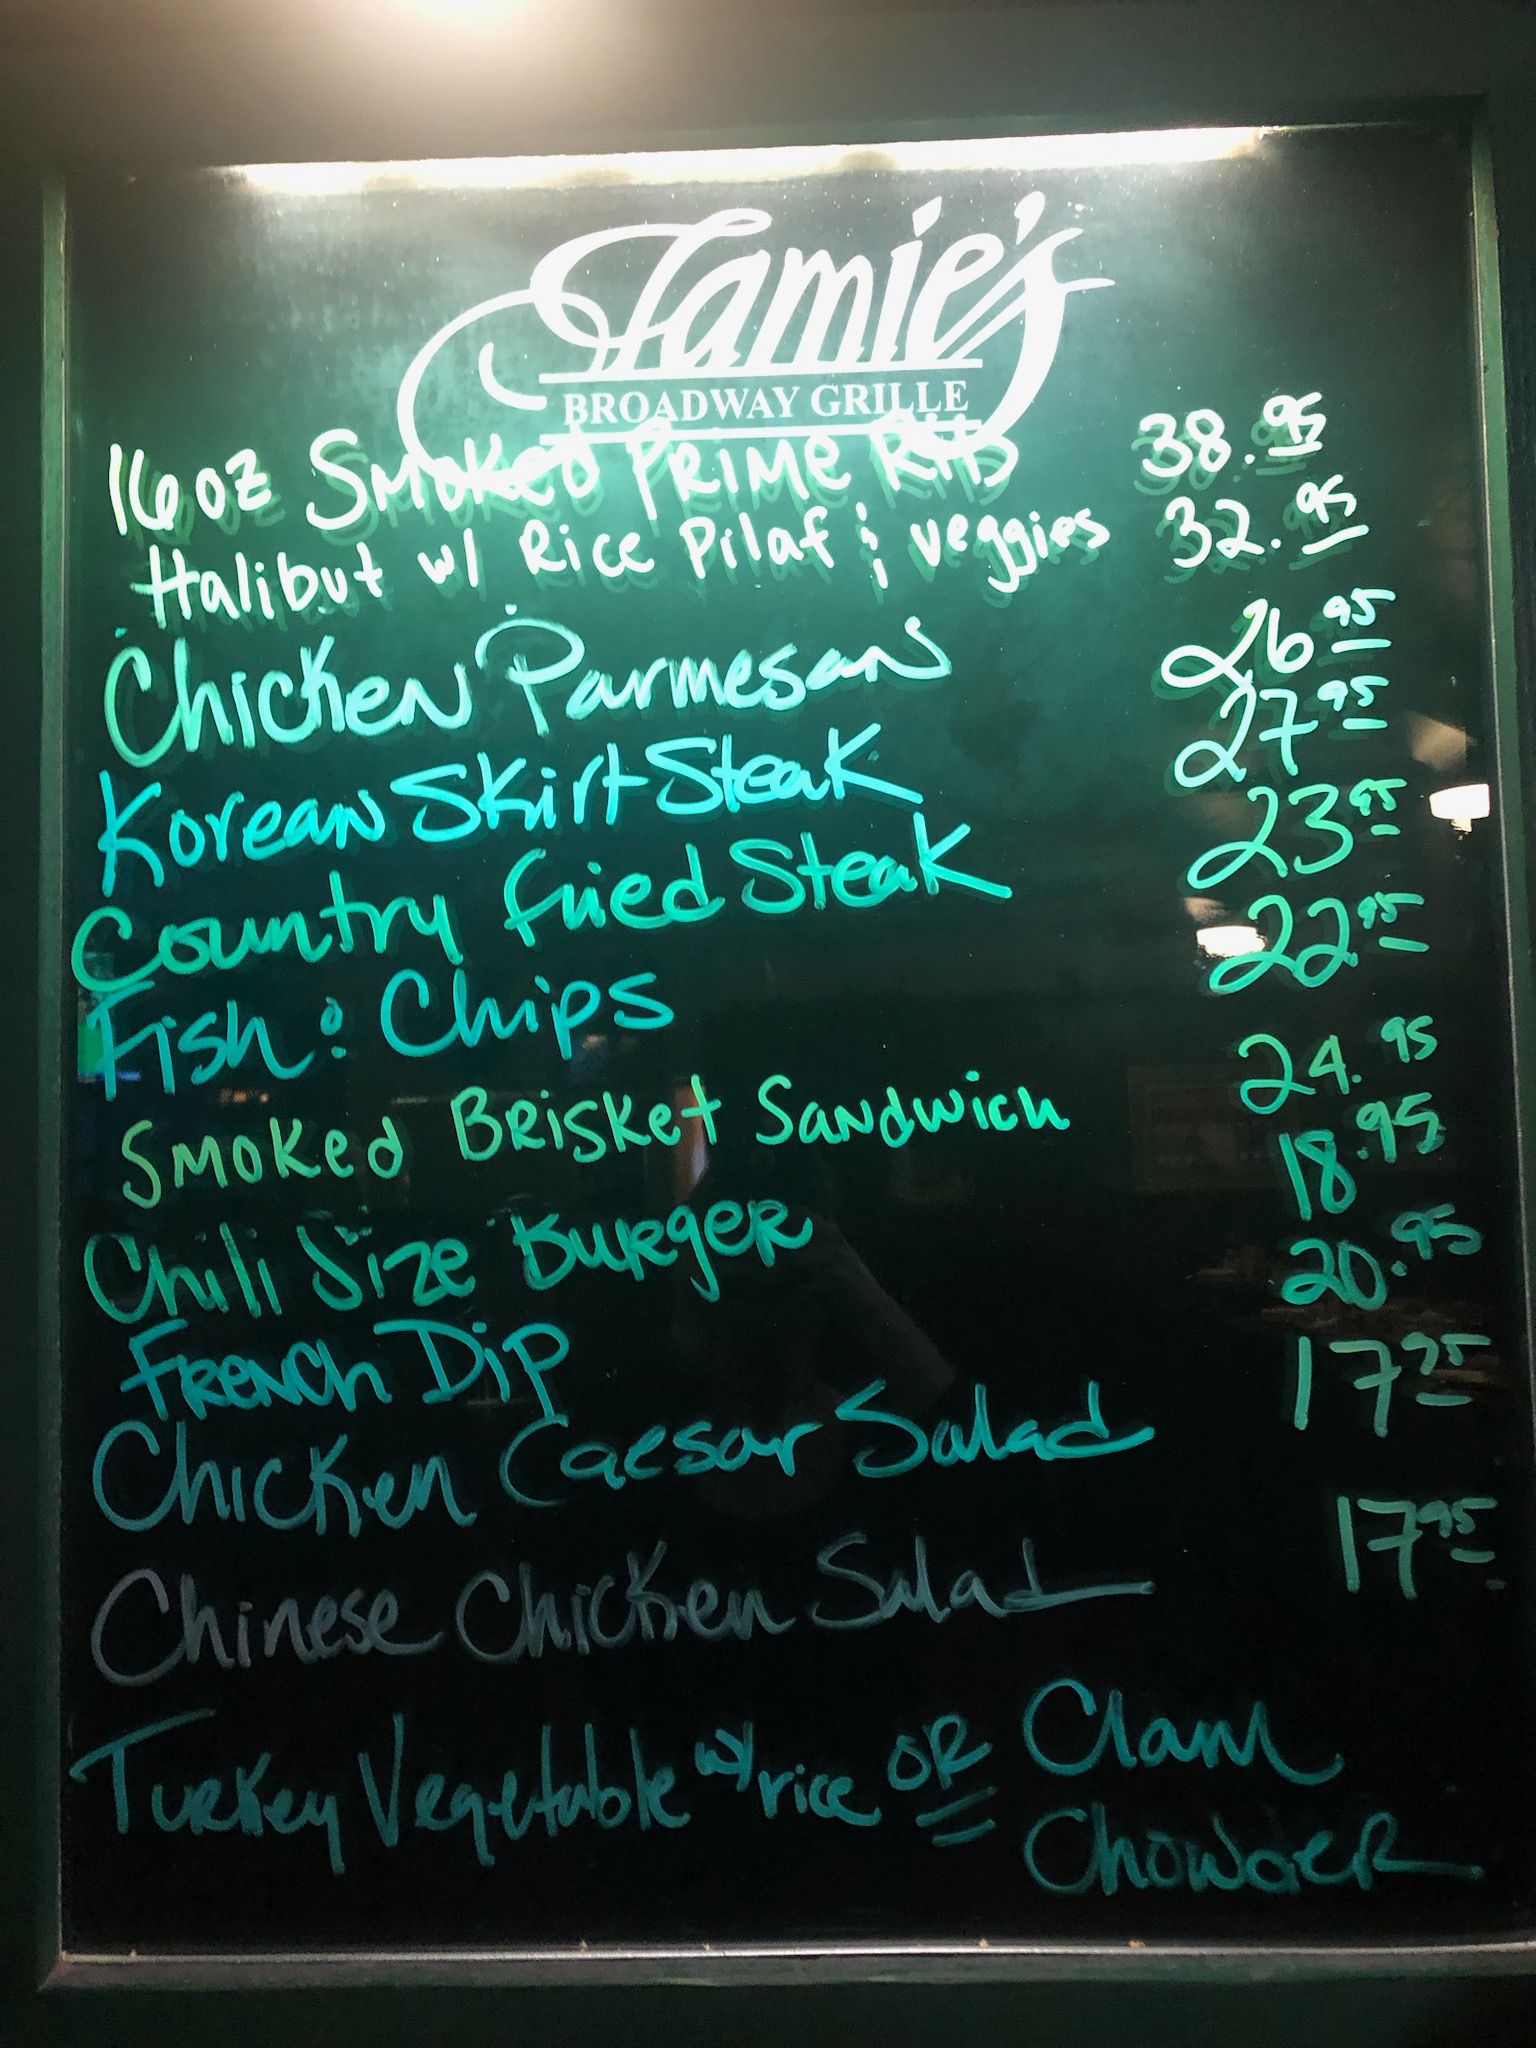 Jamie's
BROADWAY GRILLE
16oz Smoked Prime Rib 38.95
Halibut w/ Rice Pilaf & veggies 32.95
Chicken Parmesan 26 95
Korean Skirt Steak 27 95
Country Fried Steak 23 95
Fish & Chips 22 95
Smoked Brisket Sandwich 24.95
Chili Size Burger 18.95
French Dip 20.95
Chicken Caesar Salad 17 95
Chinese Chicken Salad 17 95
Turkey Vegetable w/ rice OR Clam
Chowder